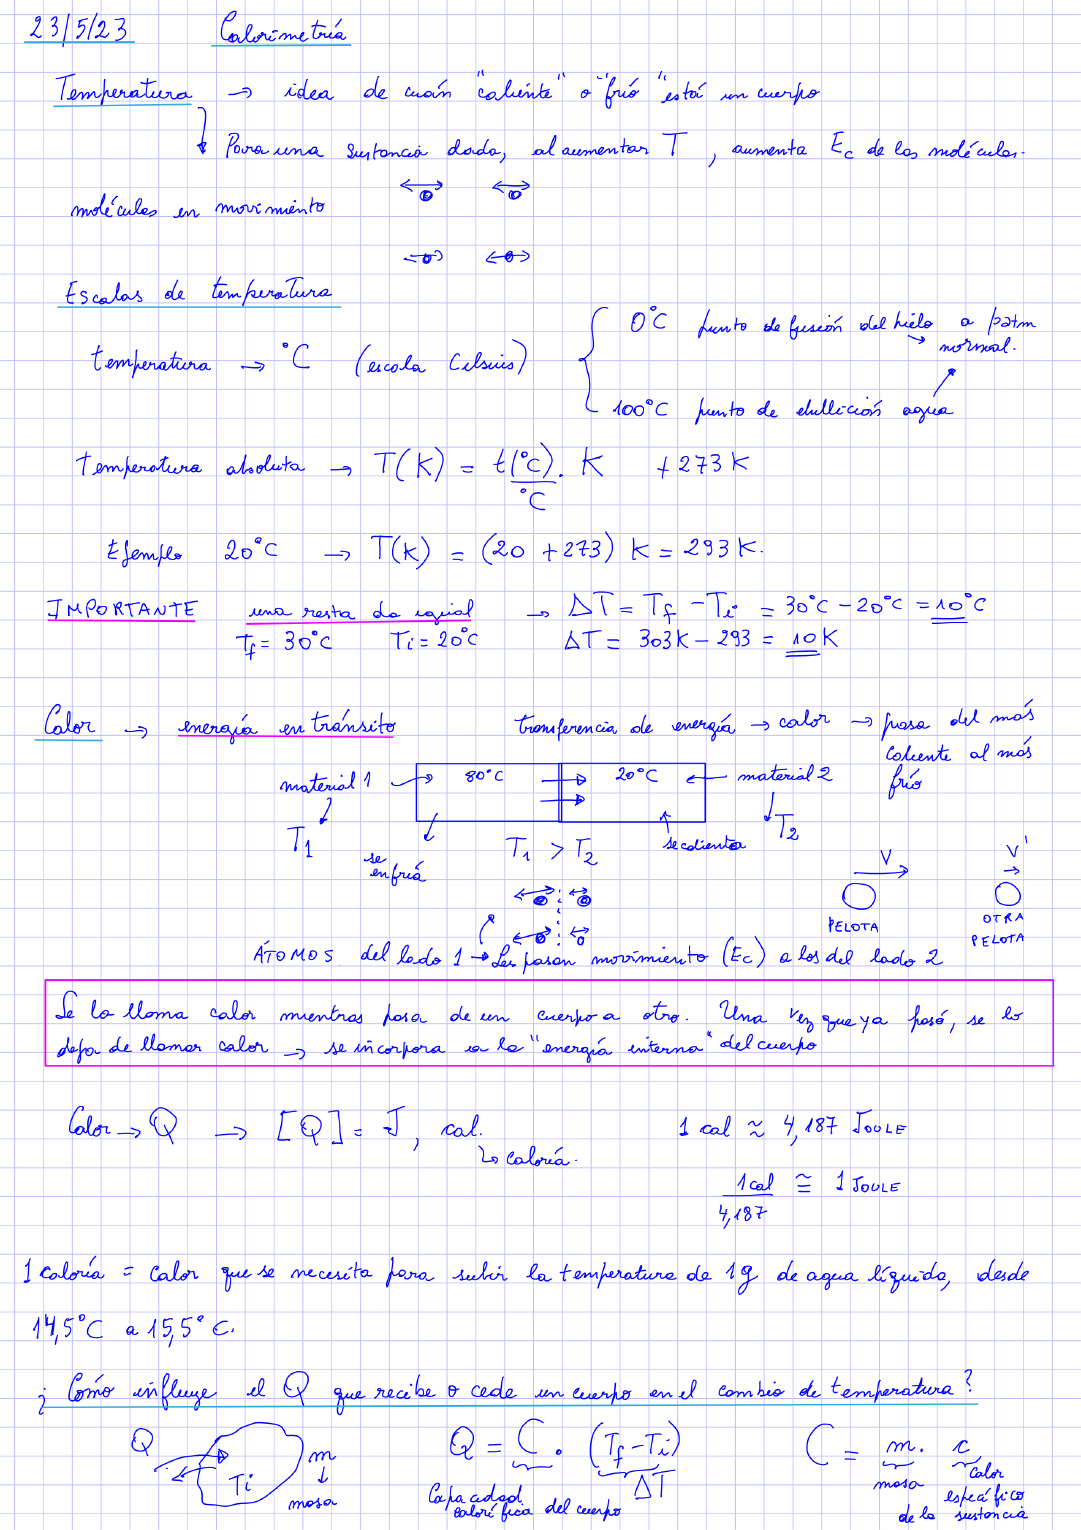 23/5/23 Calorimetría
Temperatura → idea de cuán "caliente" o "frío" está un cuerpo
Para una sustancia dada, al aumentar T, aumenta Ec de las moléculas.
moléculas en movimiento
Escalas de temperatura
0°C punto de fusión del hielo a patm
normal.
temperatura → °C (escala Celsius)
100°C punto de ebullición agua
temperatura absoluta → T(K) = t(°C)/°C . K + 273 K
Ejemplo 20°C → T(K) = (20 + 273) K = 293 K.
IMPORTANTE una resta da igual → ΔT = Tf - Ti = 30°C - 20°C = 10°C
Tf = 30°C Ti = 20°C ΔT = 303K - 293 = 10 K
Calor → energía en tránsito transferencia de energía → calor → pasa del más
caliente al más
frío
material 1 80°C 20°C material 2
T1 T2
se
enfría
T1 > T2
se calienta
V V'
PELOTA OTRA
PELOTA
ÁTOMOS del lado 1 → Les pasan movimiento (Ec) a los del lado 2
Se la llama calor mientras pasa de un cuerpo a otro. Una vez que ya pasó, se lo
deja de llamar calor → se incorpora a la "energía interna" del cuerpo
Calor → Q → [Q] = J, cal. 1 cal ≈ 4,187 JOULE
↳ caloría.
1 cal/4,187 ≅ 1 JOULE
1 caloría = calor que se necesita para subir la temperatura de 1g de agua líquida, desde
14,5°C a 15,5°C.
¿Cómo influye el Q que recibe o cede un cuerpo en el cambio de temperatura?
Q Ti m
masa
Q = C . (Tf - Ti)
ΔT
Capacidad
calorífica del cuerpo
C = m . c
masa calor
específico
de la sustancia